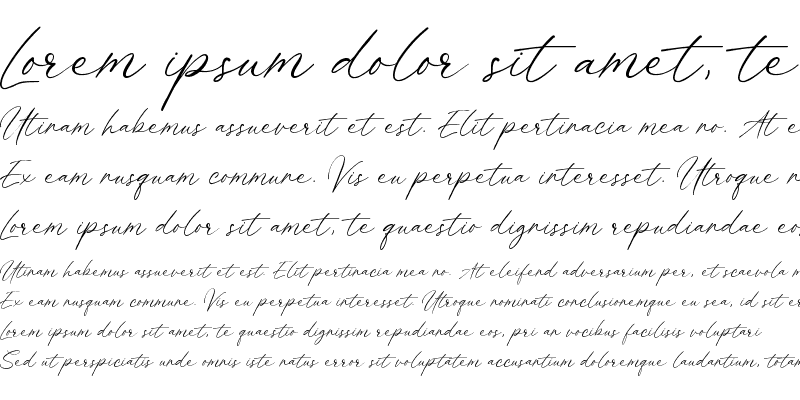 Lorem ipsum dolor sit amet, te
Utinam habemus assueverit et est. Elit pertinacia mea no. At e
Ex eam nusquam commune. Vis eu perpetua interesset. Utroque n
Lorem ipsum dolor sit amet, te quaestio dignissim repudiandae eos
Utinam habemus assueverit et est. Elit pertinacia mea no. At eleifend adversarium per, et scaevola m
Ex eam nusquam commune. Vis eu perpetua interesset. Utroque nominati conclusionemque eu sea, id sit er
Lorem ipsum dolor sit amet, te quaestio dignissim repudiandae eos, pri an vocibus facilisis voluptari
Sed ut perspiciatis unde omnis iste natus error sit voluptatem accusantium doloremque laudantium, totam